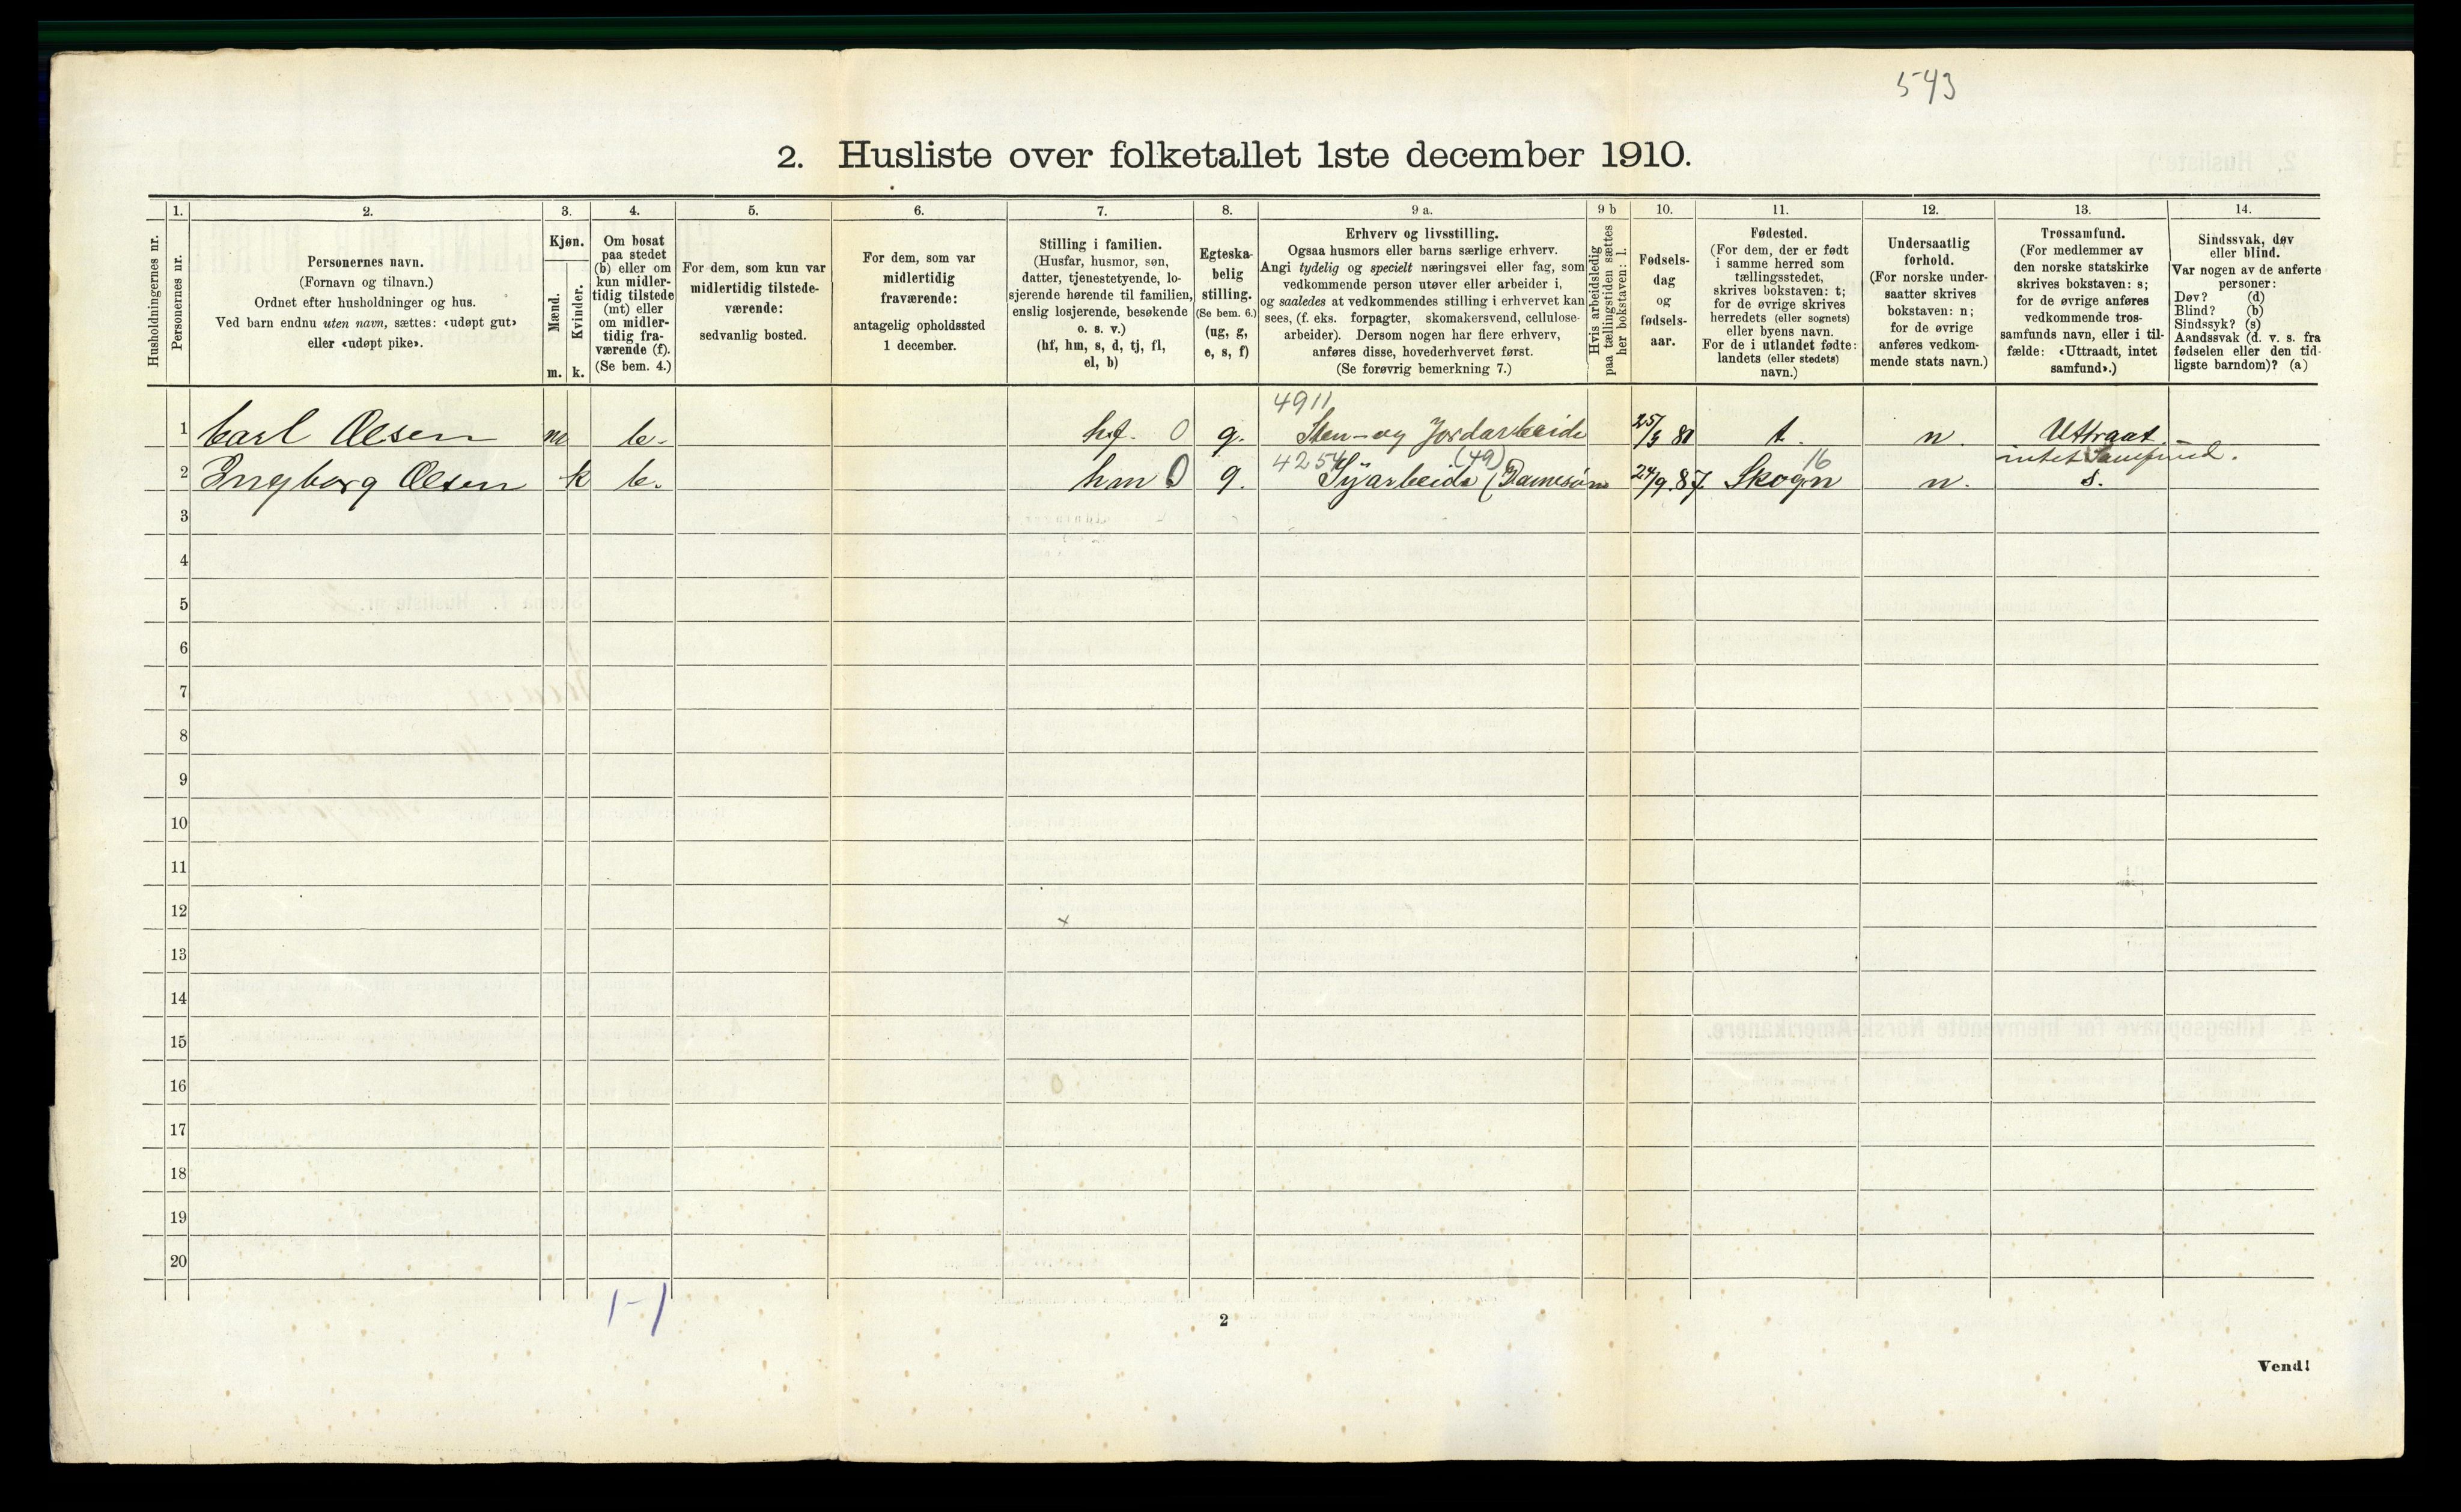 543
2. Husliste over folketallet 1ste december 1910.
Husholdningernes nr.
1.
Personernes nr.
2.
Personernes navn.
(Fornavn og tilnavn.)
Ordnet efter husholdninger og hus.
Ved barn endnu uten navn, sættes: «udøpt gut»
eller «udøpt pike».
3.
Kjøn.
Mænd.
Kvinder.
m. k.
4.
Om bosat
paa stedet
(b) eller om
kun midler-
tidig tilstede
(mt) eller
om midler-
tidig fra-
værende (f).
(Se bem. 4.)
5.
For dem, som kun var
midlertidig tilstede-
værende:
sedvanlig bosted.
6.
For dem, som var
midlertidig
fraværende:
antagelig opholdssted
1 december.
7.
Stilling i familien.
(Husfar, husmor, søn,
datter, tjenestetyende, lo-
sjerende hørende til familien,
enslig losjerende, besøkende
o. s. v.)
(hf, hm, s, d, tj, fl,
el, b)
8.
Egteska-
belig
stilling.
(Se bem. 6.)
(ug, g,
e, s, f)
9 a.
Erhverv og livsstilling.
Ogsaa husmors eller barns særlige erhverv.
Angi tydelig og specielt næringsvei eller fag, som
vedkommende person utøver eller arbeider i,
og saaledes at vedkommendes stilling i erhvervet kan
sees, (f. eks. forpagter, skomakersvend, cellulose-
arbeider). Dersom nogen har flere erhverv,
anføres disse, hovederhvervet først.
(Se forøvrig bemerkning 7.)
9 b
Hvis arbeidsledig
paa tællingstiden sættes
her bokstaven: l.
10.
Fødsels-
dag
og
fødsels-
aar.
11.
Fødested.
(For dem, der er født
i samme herred som
tællingsstedet,
skrives bokstaven: t;
for de øvrige skrives
herredets (eller sognets)
eller byens navn.
For de i utlandet fødte:
landets (eller stedets)
navn.)
12.
Undersaatlig
forhold.
(For norske under-
saatter skrives
bokstaven: n;
for de øvrige
anføres vedkom-
mende stats navn.)
13.
Trossamfund.
(For medlemmer av
den norske statskirke
skrives bokstaven: s;
for de øvrige anføres
vedkommende tros-
samfunds navn, eller i til-
fælde: «Uttraadt, intet
samfund».)
14.
Sindssvak, døv
eller blind.
Var nogen av de anførte
personer:
Døv? (d)
Blind? (b)
Sindssyk? (s)
Aandssvak (d. v. s. fra
fødselen eller den tid-
ligste barndom)? (a)
4911
1 Carl Olsen m b. hf. 0 g. Sten- og Jordarbeide 25/3 80 t. n. Uttraat. -
intet Samfund.
4254 (49) 16
2 Ingborg Olsen k b. hm 0 g. Syarbeide (Damesøm 24/9.87 Skogn n. s.
3
4
5
6
7
8
9
10
11
12
13
14
15
16
17
18
19
20
1-1
2
Vend!